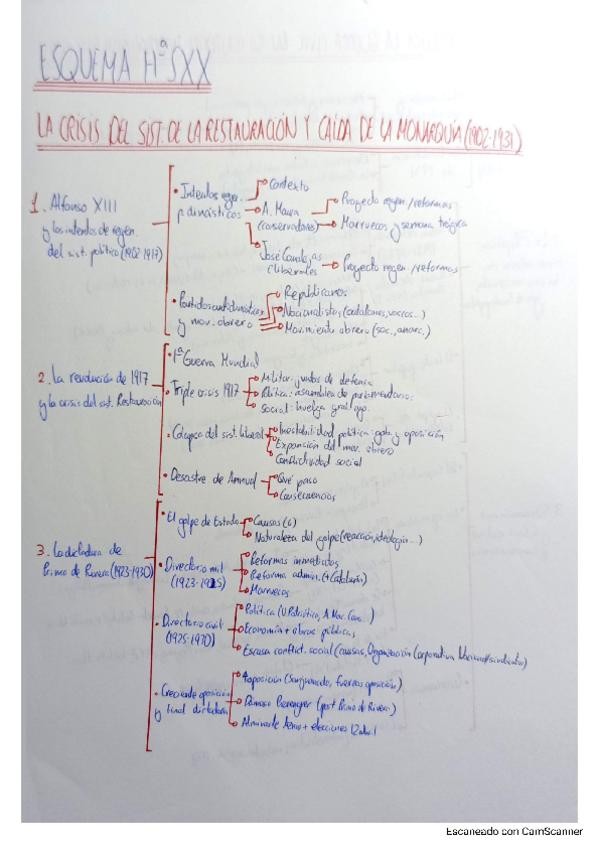 ESQUEMA Hª SXX
LA CRISIS DEL SIST. DE LA RESTAURACIÓN Y CAÍDA DE LA MONARQUÍA (1902-1931)
1. Alfonso XIII
y los intentos de regen.
del sist. político (1902-1917)
• Intentos regen.
p. dinásticos
Contexto
A. Maura
(conservadores)
Proyecto regen./reformas
Marruecos y semana trágica
José Canalejas
(liberales)
Proyecto regen./reformas
• Partidos antidinásticos
y mov. obrero
Republicanos
Nacionalistas (catalanes, vascos...)
Movimiento obrero (soc., anarc.)
2. La revolución de 1917
y la crisis del sist. Restauración
• 1ª Guerra Mundial
• Triple crisis 1917
Militar: juntas de defensa
Política: asamblea de parlamentarios
Social: huelga gral. ago.
• Colapso del sist. liberal
Inestabilidad política: gob. y oposición
Expansión del mov. obrero
Conflictividad social
• Desastre de Annual
Qué pasó
Consecuencias
3. La dictadura de
Primo de Rivera (1923-1930)
• El golpe de Estado
Causas (6)
Naturaleza del golpe (reacción, ideología...)
• Directorio mil.
(1923-1925)
Reformas inmediatas
Reforma admin. (+ Cataluña)
Marruecos
• Directorio civil
(1925-1930)
Política (U. Patriótica, A. Nac. Cons...)
Economía + obras públicas
Escasa conflict. social (causas, Organización Corporativa Nacional/sindicato)
• Creciente oposición
y final dictadura
Oposición (Sanjuanada, fuerzas oposición)
Dámaso Berenguer (post Primo de Rivera)
Almirante Aznar + elecciones 12 abril
Escaneado con CamScanner